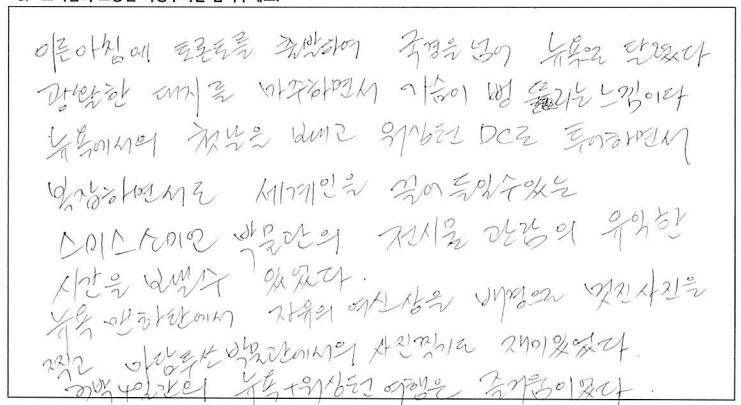 이른아침에 토론토를 출발하여 국경을 넘어 뉴욕으로 달렸다
광활한 대지를 마주하면서 가슴이 뻥 뚫리는 느낌이다
뉴욕에서의 첫날을 보내고 워싱턴 DC로 투어하면서
복잡하면서도 세계인을 끌어들일수있는
스미스소미언 박물관의 전시물 관람의 유익한
시간을 보낼수 있었다.
뉴욕 맨하탄에서 자유의 여신상을 배경으로 멋진사진을
찍고 마담투소 박물관에서의 사진찍기도 재미있었다.
3박4일간의 뉴욕+워싱턴 여행은 즐거움이었다.